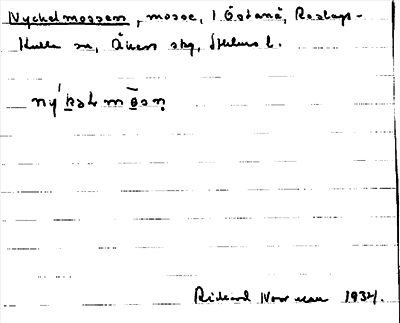 Nyckelmossen, mosse, 1 Östanå, Roslags-
Kulla sn, Åkers skg, Sthlms l.
ny´kəl m o̅sən̥
Rickard 1934.